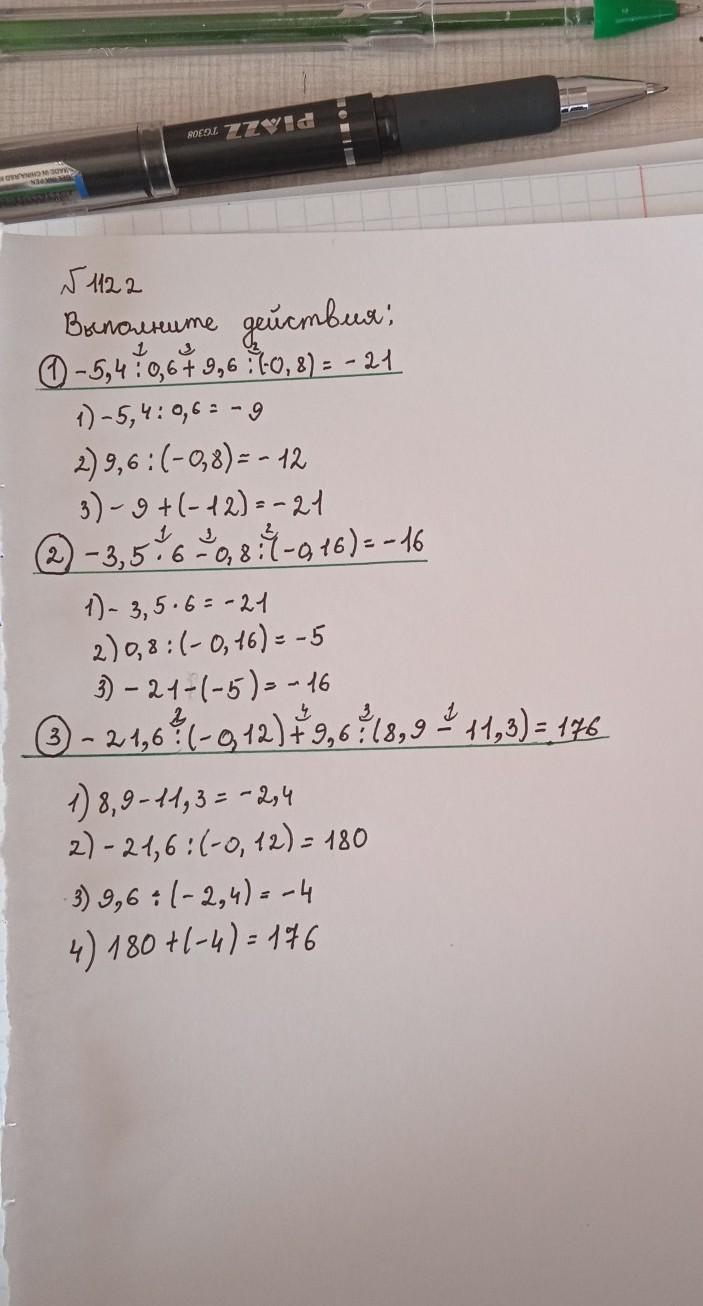 PIAZZ TG308
MADE IN CHINA
№ 1122
Выполните действия:
① -5,4 : 0,6 + 9,6 : (-0,8) = -21
1) -5,4 : 0,6 = -9
2) 9,6 : (-0,8) = -12
3) -9 + (-12) = -21
② -3,5 · 6 - 0,8 : (-0,16) = -16
1) -3,5 · 6 = -21
2) 0,8 : (-0,16) = -5
3) -21 - (-5) = -16
③ -21,6 : (-0,12) + 9,6 : (8,9 - 11,3) = 176
1) 8,9 - 11,3 = -2,4
2) -21,6 : (-0,12) = 180
3) 9,6 : (-2,4) = -4
4) 180 + (-4) = 176